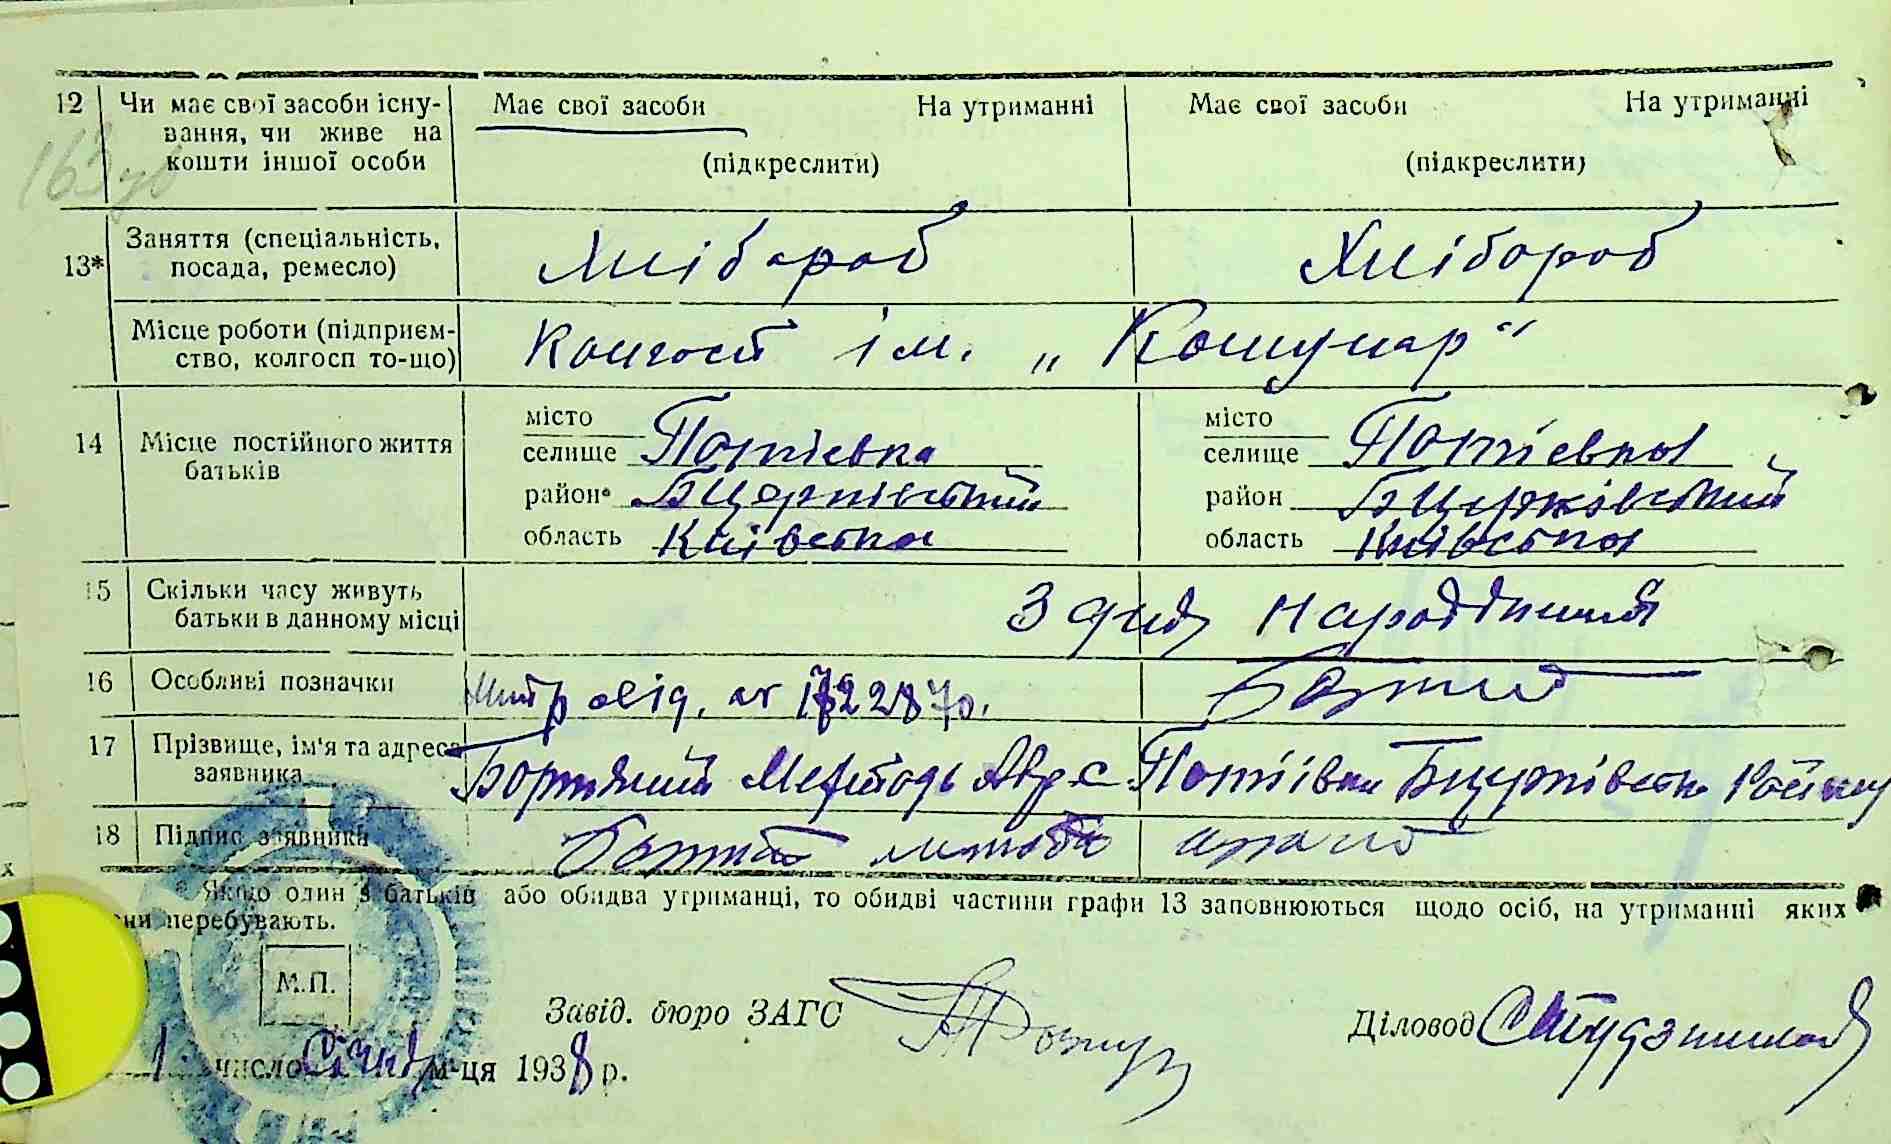 12 Чи має свої засоби існу- Має свої засоби На утриманні Має свої засоби На утриманні
вання, чи живе на
кошти іншої особи (підкреслити) (підкреслити)
13* Заняття (спеціальність, Хлібороб Хлібороб
посада, ремесло)
Місце роботи (підприєм- Колгосп ім. „Комунар“
ство, колгосп то-що)
14 Місце постійного життя батьків
місто місто
селище Потієвка селище Потієвка
район Бцерківський район Бцерківський
область Київська область Київська
15 Скільки часу живуть З дня народження
батьки в данному місці
16 Особливі позначки
17 Прізвище, ім'я та адреса Потіївка Бцерківськ Району
заявника
18 Підпис заявника
* Якщо один з батьків або обидва утриманці, то обидві частини графи 13 заповнюються щодо осіб, на утриманні яких
они перебувають.
М.П.
Завід. бюро ЗАГС
Діловод
1 число Січня м-ця 1938 р.